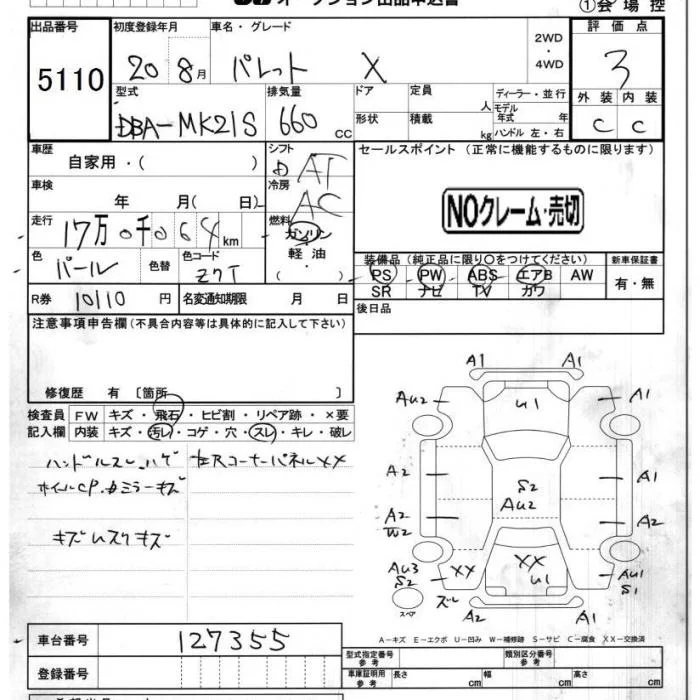 オークション出品申込書
①会場控
出品番号 初度登録年月 車名・グレード 2WD・4WD 評価点
5110 20 8月 パレット X 3
型式 排気量 ドア 定員 人 ディーラー・並行 モデル年式 年 外装 内装
DBA-MK21S 660cc 形状 積載 kg ハンドル 左・右 C C
車歴 自家用・( ) シフト AT セールスポイント (正常に機能するものに限ります)
車検 年 月( 日) 冷房 AC
NOクレーム・売切
走行 17万0千064km 燃料 ガソリン
軽油
色 パール 色替 色コード Z7T ・( )
装備品 (純正品に限り○をつけてください) 新車保証書
PS PW ABS エアB AW 有・無
SR ナビ TV カワ
R券 10110円 名変通知期限 月 日 後日品
注意事項申告欄 (不具合内容等は具体的に記入して下さい)
修復歴 有 〔箇所 〕
検査員 FW キズ・飛石・ヒビ割・リペア跡・×要
記入欄 内装 キズ・汚レ・コゲ・穴・スレ・キレ・破レ
ハンドルスレ、ハゲ
左Rコーナーパネル××
ホイルCP
キズ
A1 A1
AU2 U1 A1
A2 S2 A1
AU2
A2 A2
W2
AU3 XX XX AU1
S2 U1 S1
ズレ
スペア A2 A1
A-キズ E-エクボ U-凹み W-補修跡 S-サビ C-腐食 XX-交換済
車台番号 127355
型式指定番号 参考 類別区分番号 参考
登録番号
車庫証明用 参考 長さ cm 幅 cm 高さ cm